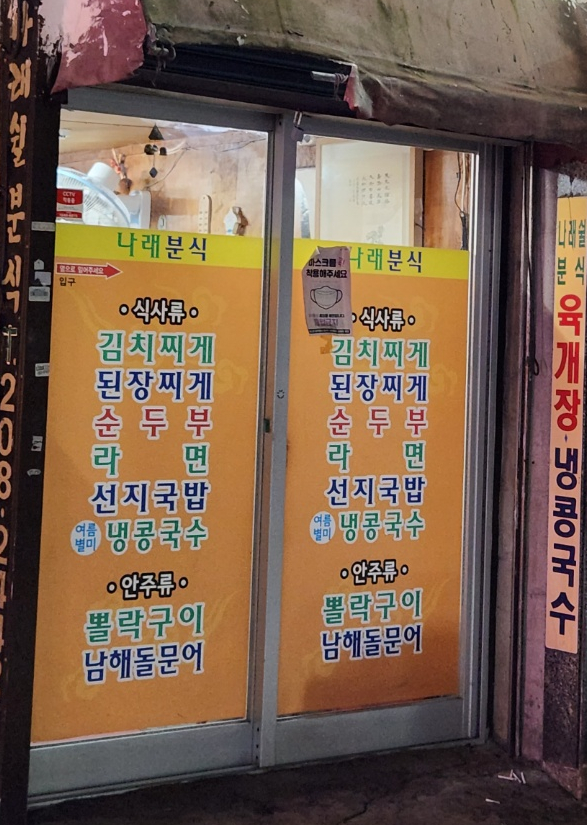 나래쉴분식
208.2
CCTV
작동중
나래분식
옆으로 밀어주세요
입구
• 식사류 •
김치찌게
된장찌게
순두부
라면
선지국밥
여름
별미
냉콩국수
• 안주류 •
뽈락구이
남해돌문어
나래분식
마스크를
착용해주세요
• 식사류 •
김치찌게
된장찌게
순두부
라면
선지국밥
여름
별미
냉콩국수
• 안주류 •
뽈락구이
남해돌문어
나래쉴
분식
육개장·냉콩국수